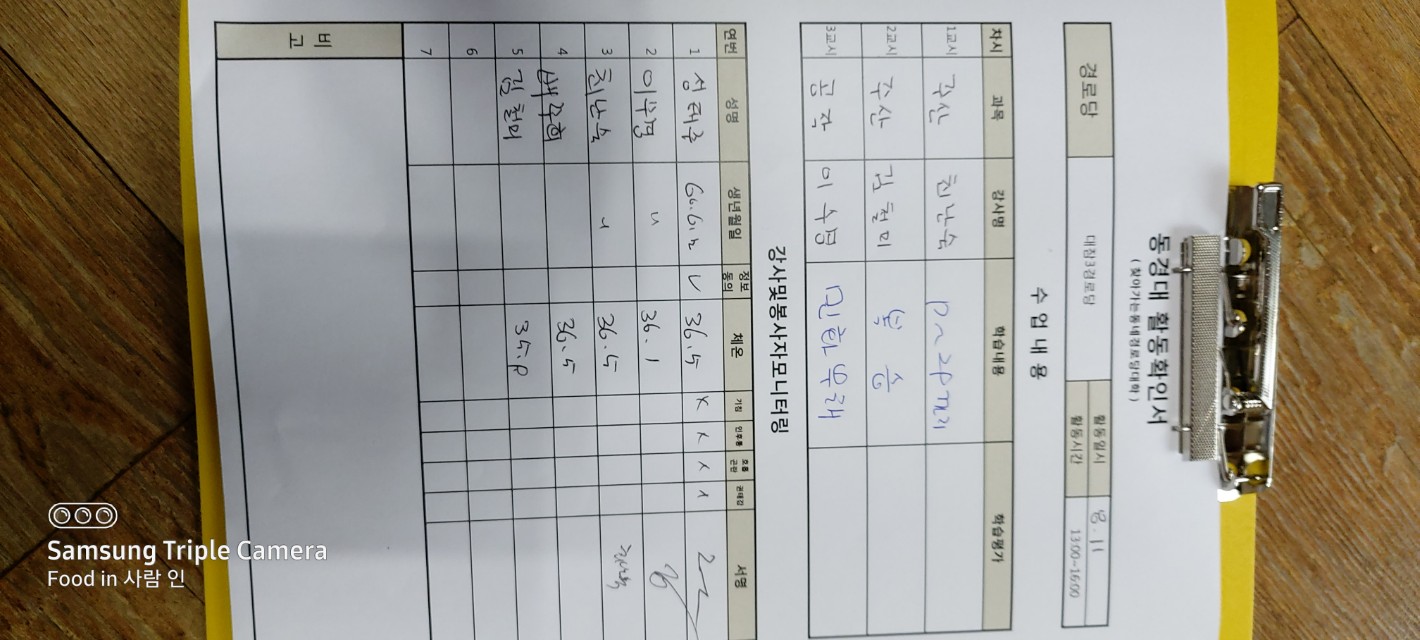 동경대 활동확인서
(찾아가는동네경로당대학)
경로당 대창3경로당 활동일시 8.11
활동시간 13:00~16:00
수업내용
차시 과목 강사명 학습내용 학습평가
1교시 주산 최난숙
2교시 주산 김철미
3교시 공작 이수경
강사및봉사자모니터링
연번 성명 생년월일 정보동의 체온 기침 인후통 호흡곤란 권태감 서명
1 36.5
2 이수경 36.1
3 최난숙 36.5
4 36.5
5 김철미
6
7
비고
Samsung Triple Camera
Food in 사람 인